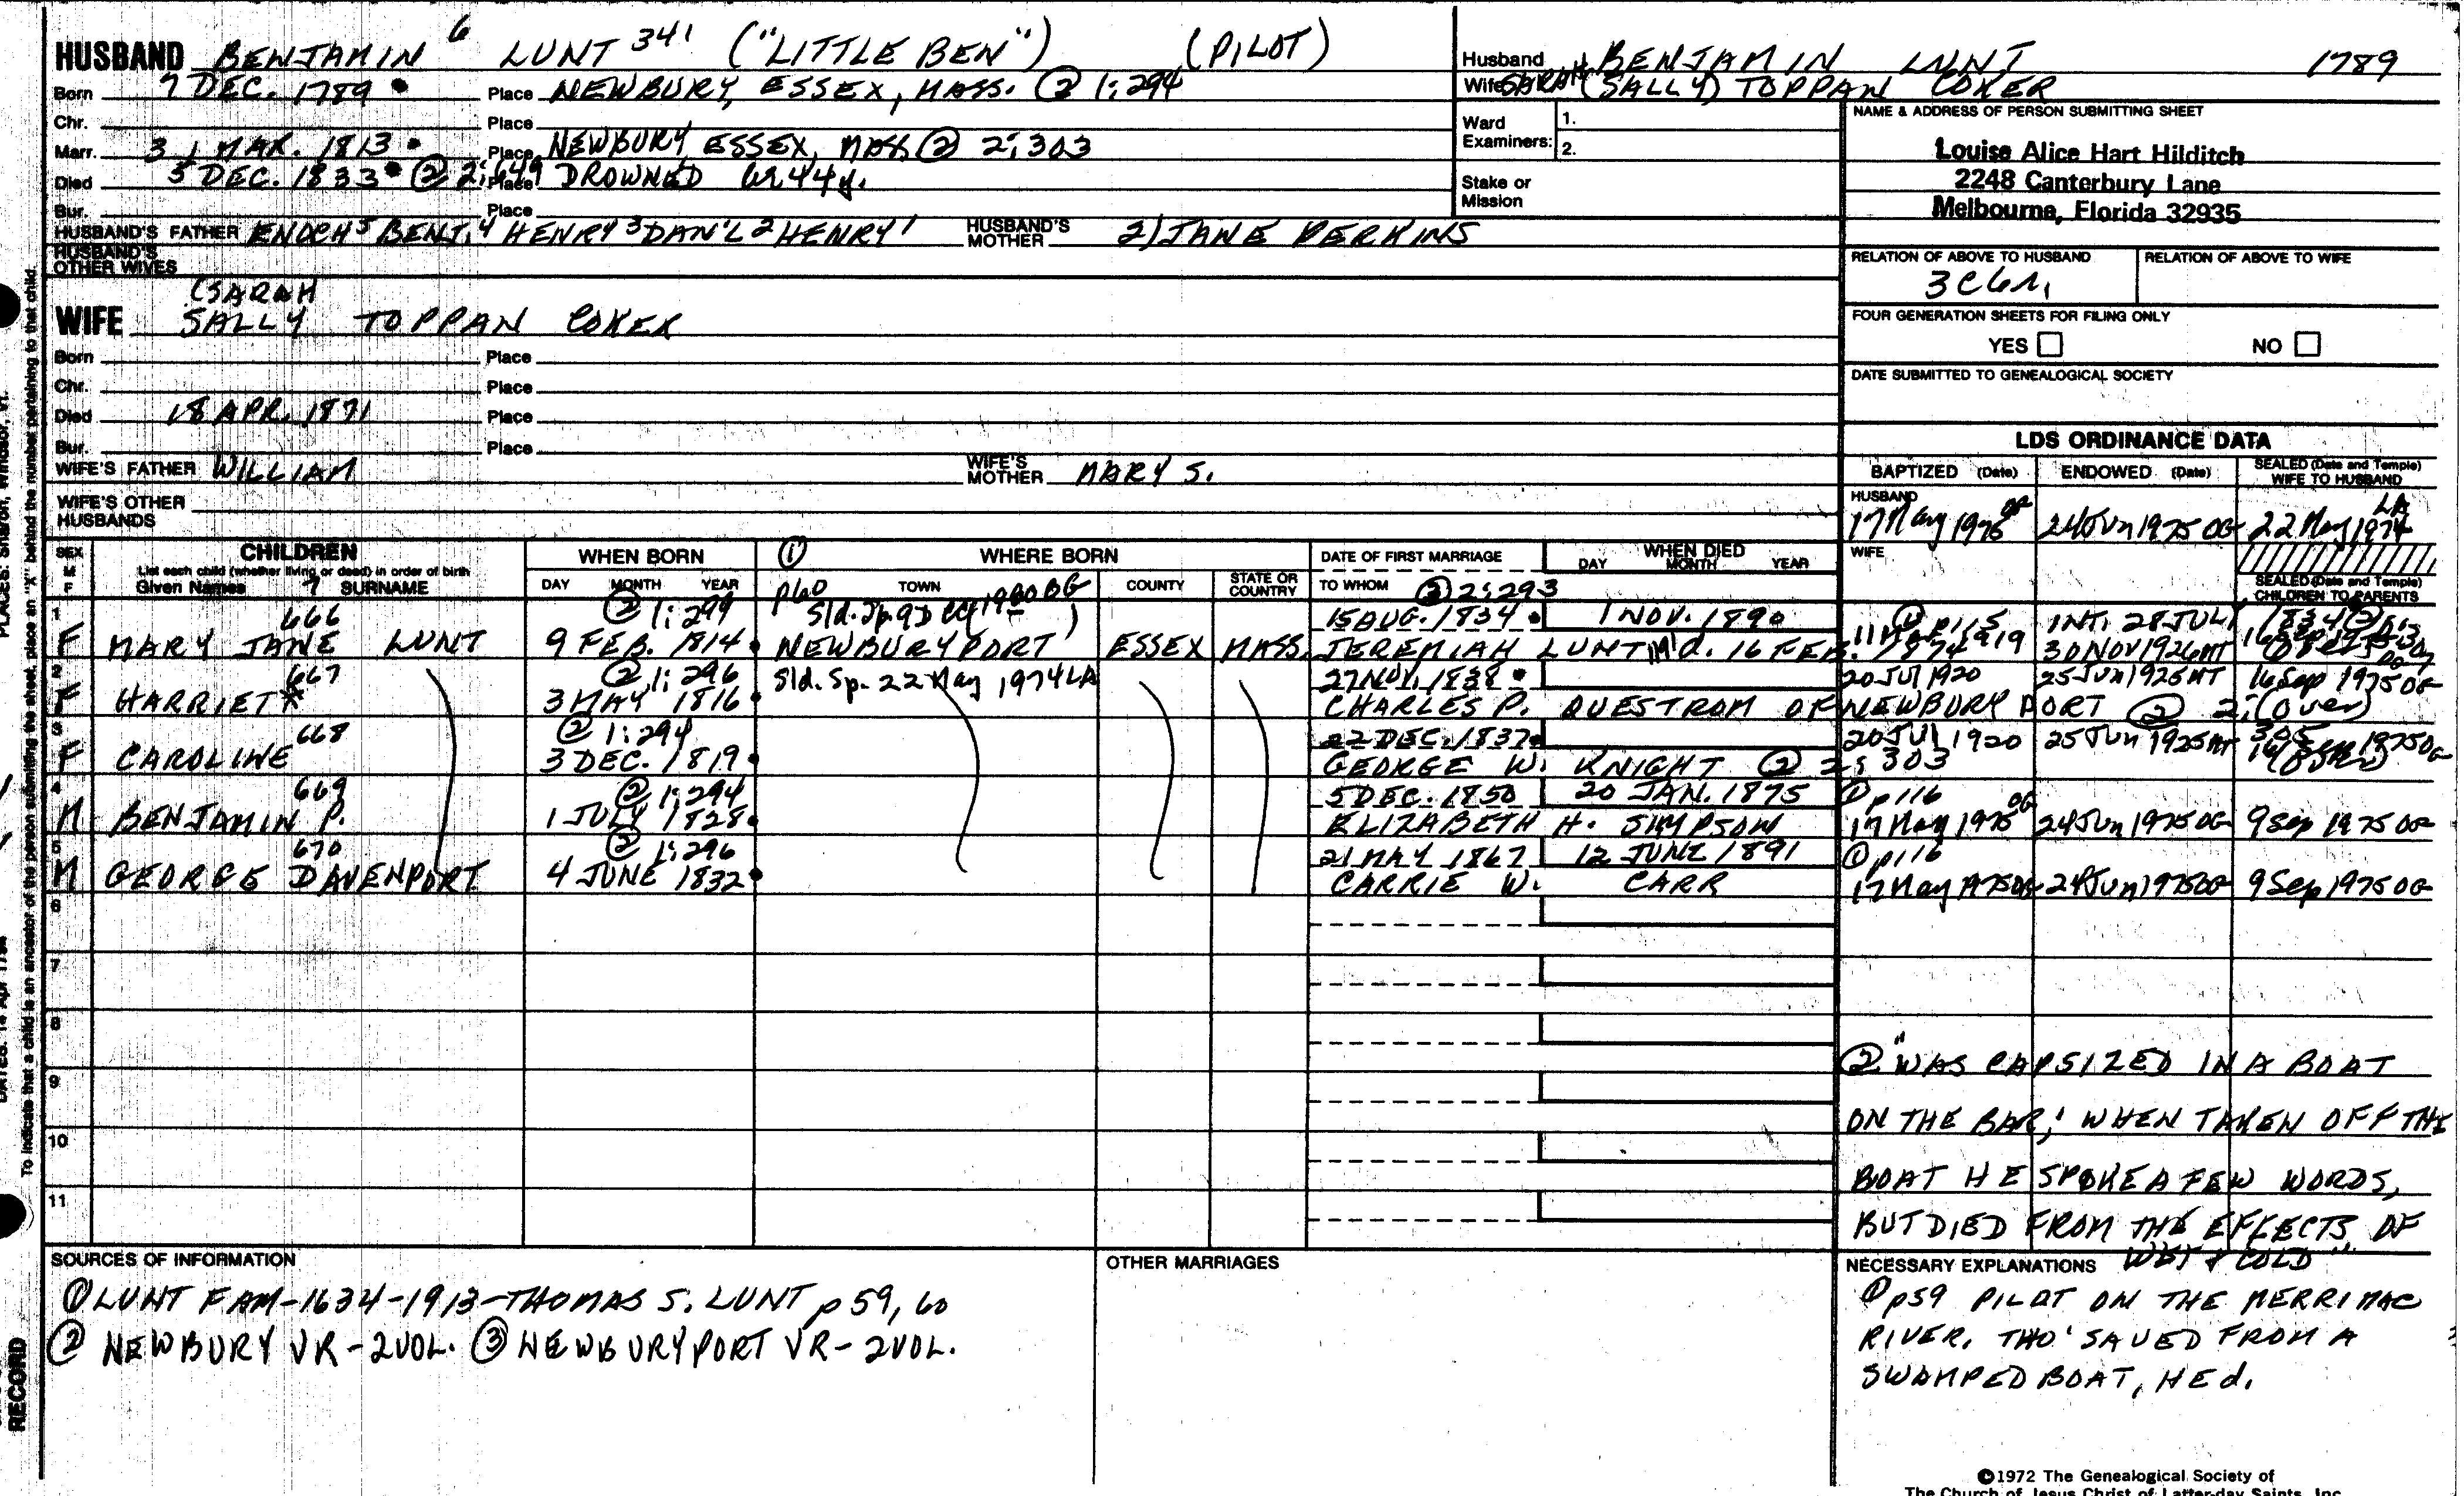 HUSBAND BENJAMIN 6 LUNT 341 ("LITTLE BEN") (PILOT)
Born 7 DEC. 1789 Place NEWBURY, ESSEX, MASS. ② 1:294
Chr. Place
Marr. 31 MAR. 1813 Place NEWBURY, ESSEX, MASS. ② 2:303
Died 5 DEC. 1833 ② 2:649 Place DROWNED 44y.
Bur. Place
HUSBAND'S FATHER ENOCH 5 BENJ. 4 HENRY 3 DAN'L 2 HENRY 1 HUSBAND'S MOTHER 2) JANE PERKINS
HUSBAND'S OTHER WIVES
(SARAH
WIFE SALLY TOPPAN COKER
Born Place
Chr. Place
Died 18 APR. 1871 Place
Bur. Place
WIFE'S FATHER WILLIAM WIFE'S MOTHER MARY S.
WIFE'S OTHER HUSBANDS
Husband BENJAMIN LUNT 1789
Wife SARAH (SALLY) TOPPAN COKER
Ward Examiners: 1.
2.
Stake or Mission
NAME & ADDRESS OF PERSON SUBMITTING SHEET
Louise Alice Hart Hilditch
2248 Canterbury Lane
Melbourne, Florida 32935
RELATION OF ABOVE TO HUSBAND RELATION OF ABOVE TO WIFE
FOUR GENERATION SHEETS FOR FILING ONLY
YES NO
DATE SUBMITTED TO GENEALOGICAL SOCIETY
LDS ORDINANCE DATA
BAPTIZED (Date) ENDOWED (Date) SEALED (Date and Temple) WIFE TO HUSBAND
HUSBAND
17 May 1975 OG 24 Jun 1975 OG 22 May 1974 LA
WIFE
SEALED (Date and Temple) CHILDREN TO PARENTS
SEX M F CHILDREN
List each child (whether living or dead) in order of birth
Given Names 7 SURNAME
WHEN BORN DAY MONTH YEAR
① p60 WHERE BORN TOWN COUNTY STATE OR COUNTRY
DATE OF FIRST MARRIAGE TO WHOM ③ 2:293
WHEN DIED DAY MONTH YEAR
1 666 ② 1:299 15 AUG. 1834 1 NOV. 1890 ① p115 INT. 28 JULY 1834
F MARY JANE LUNT 9 FEB. 1814 NEWBURYPORT ESSEX MASS. JEREMIAH LUNT 16 FEB. 1874 30 NOV 1926
2 667 ② 1:296 Sld. Sp. 22 May 1974 LA 27 NOV. 1838 20 Jul 1920 25 Jun 1925 MT 16 Sep 1975 OG
F HARRIET* 3 MAY 1816 CHARLES P. QUESTROM OF NEWBURYPORT ② 2: (over)
3 668 ② 1:294 22 DEC. 1837 20 Jul 1920 25 Jun 1925 MT
F CAROLINE 3 DEC. 1819 GEORGE W. KNIGHT ② 2:303
4 669 ② 1:294 5 DEC. 1850 20 JAN. 1875 ① p116
M BENJAMIN P. 1 JULY 1828 ELIZABETH H. SIMPSON 17 May 1975 OG 24 Jun 1975 OG 9 Sep 1975 OG
5 670 ② 1:296 21 MAY 1867 12 JUNE 1891 ① p116
M GEORGE DAVENPORT 4 JUNE 1832 CARRIE W. CARR 17 May 1975 OG 24 Jun 1975 OG 9 Sep 1975 OG
6
7
8
9
10
11
② "WAS CAPSIZED IN A BOAT
ON THE BAR; WHEN TAKEN OFF THE
BOAT HE SPOKE A FEW WORDS,
BUT DIED FROM THE EFFECTS OF
WET & COLD"
SOURCES OF INFORMATION
① LUNT FAM-1634-1913-THOMAS S. LUNT p59, 60
② NEWBURY VR-2VOL. ③ NEWBURYPORT VR-2VOL.
OTHER MARRIAGES
NECESSARY EXPLANATIONS
① p59 PILOT ON THE MERRIMAC
RIVER. THO' SAVED FROM A
SWAMPED BOAT, HE d.
©1972 The Genealogical Society of
The Church of Jesus Christ of Latter-day Saints, Inc.
To indicate that a child is an ancestor of the person submitting the sheet, place an "X" behind the number pertaining to that child.
RECORD